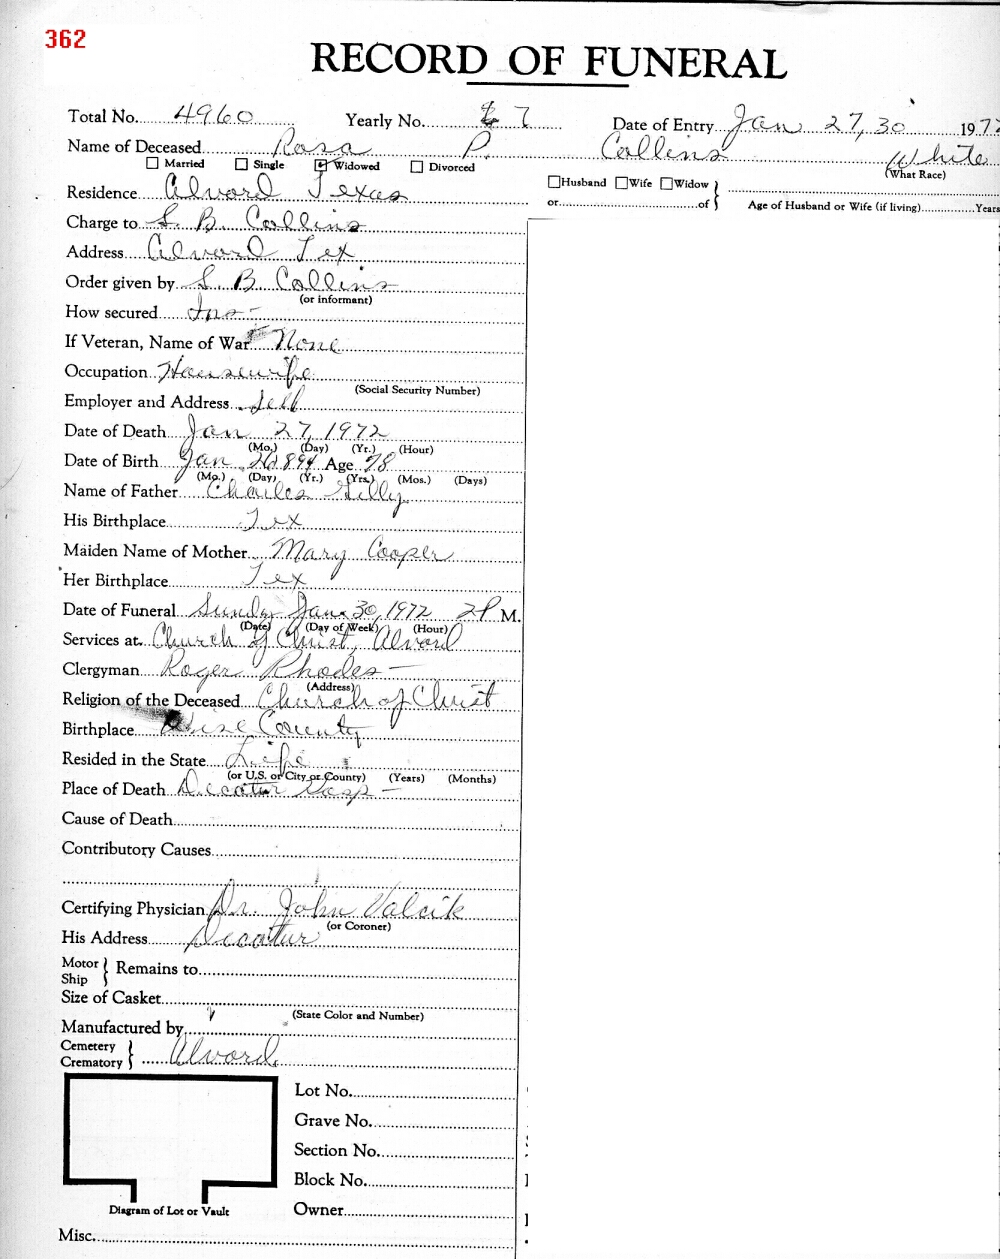 362
RECORD OF FUNERAL
Total No. 4960 Yearly No. 7 Date of Entry Jan 27, 30 1972
Name of Deceased Rosa P. Collins White
☐ Married ☐ Single ☑ Widowed ☐ Divorced (What Race)
Residence Alvord Texas ☐ Husband ☐ Wife ☐ Widow
or of Age of Husband or Wife (if living) Years
Charge to S. B. Collins
Address Alvord Tex
Order given by S. B. Collins
(or informant)
How secured Ins-
If Veteran, Name of War None
Occupation Housewife
(Social Security Number)
Employer and Address Self
Date of Death Jan 27, 1972
(Mo.) (Day) (Yr.) (Hour)
Date of Birth Jan 1894 Age 78
(Mo.) (Day) (Yr.) (Yrs.) (Mos.) (Days)
Name of Father Charles Gilly
His Birthplace Tex
Maiden Name of Mother Mary Cooper
Her Birthplace Tex
Date of Funeral Sunday Jan 30, 1972 2 P M.
(Date) (Day of Week) (Hour)
Services at Church of Christ, Alvord
Clergyman Roger Rhodes -
(Address)
Religion of the Deceased Church of Christ
Birthplace Wise County
Resided in the State Life
(or U.S. or City or County) (Years) (Months)
Place of Death Decatur Hosp -
Cause of Death
Contributory Causes
Certifying Physician Dr. John Valcik
(or Coroner)
His Address Decatur
Motor Ship } Remains to
Size of Casket
(State Color and Number)
Manufactured by
Cemetery Crematory } Alvord
Lot No.
Grave No.
Section No.
Block No.
Diagram of Lot or Vault Owner
Misc.